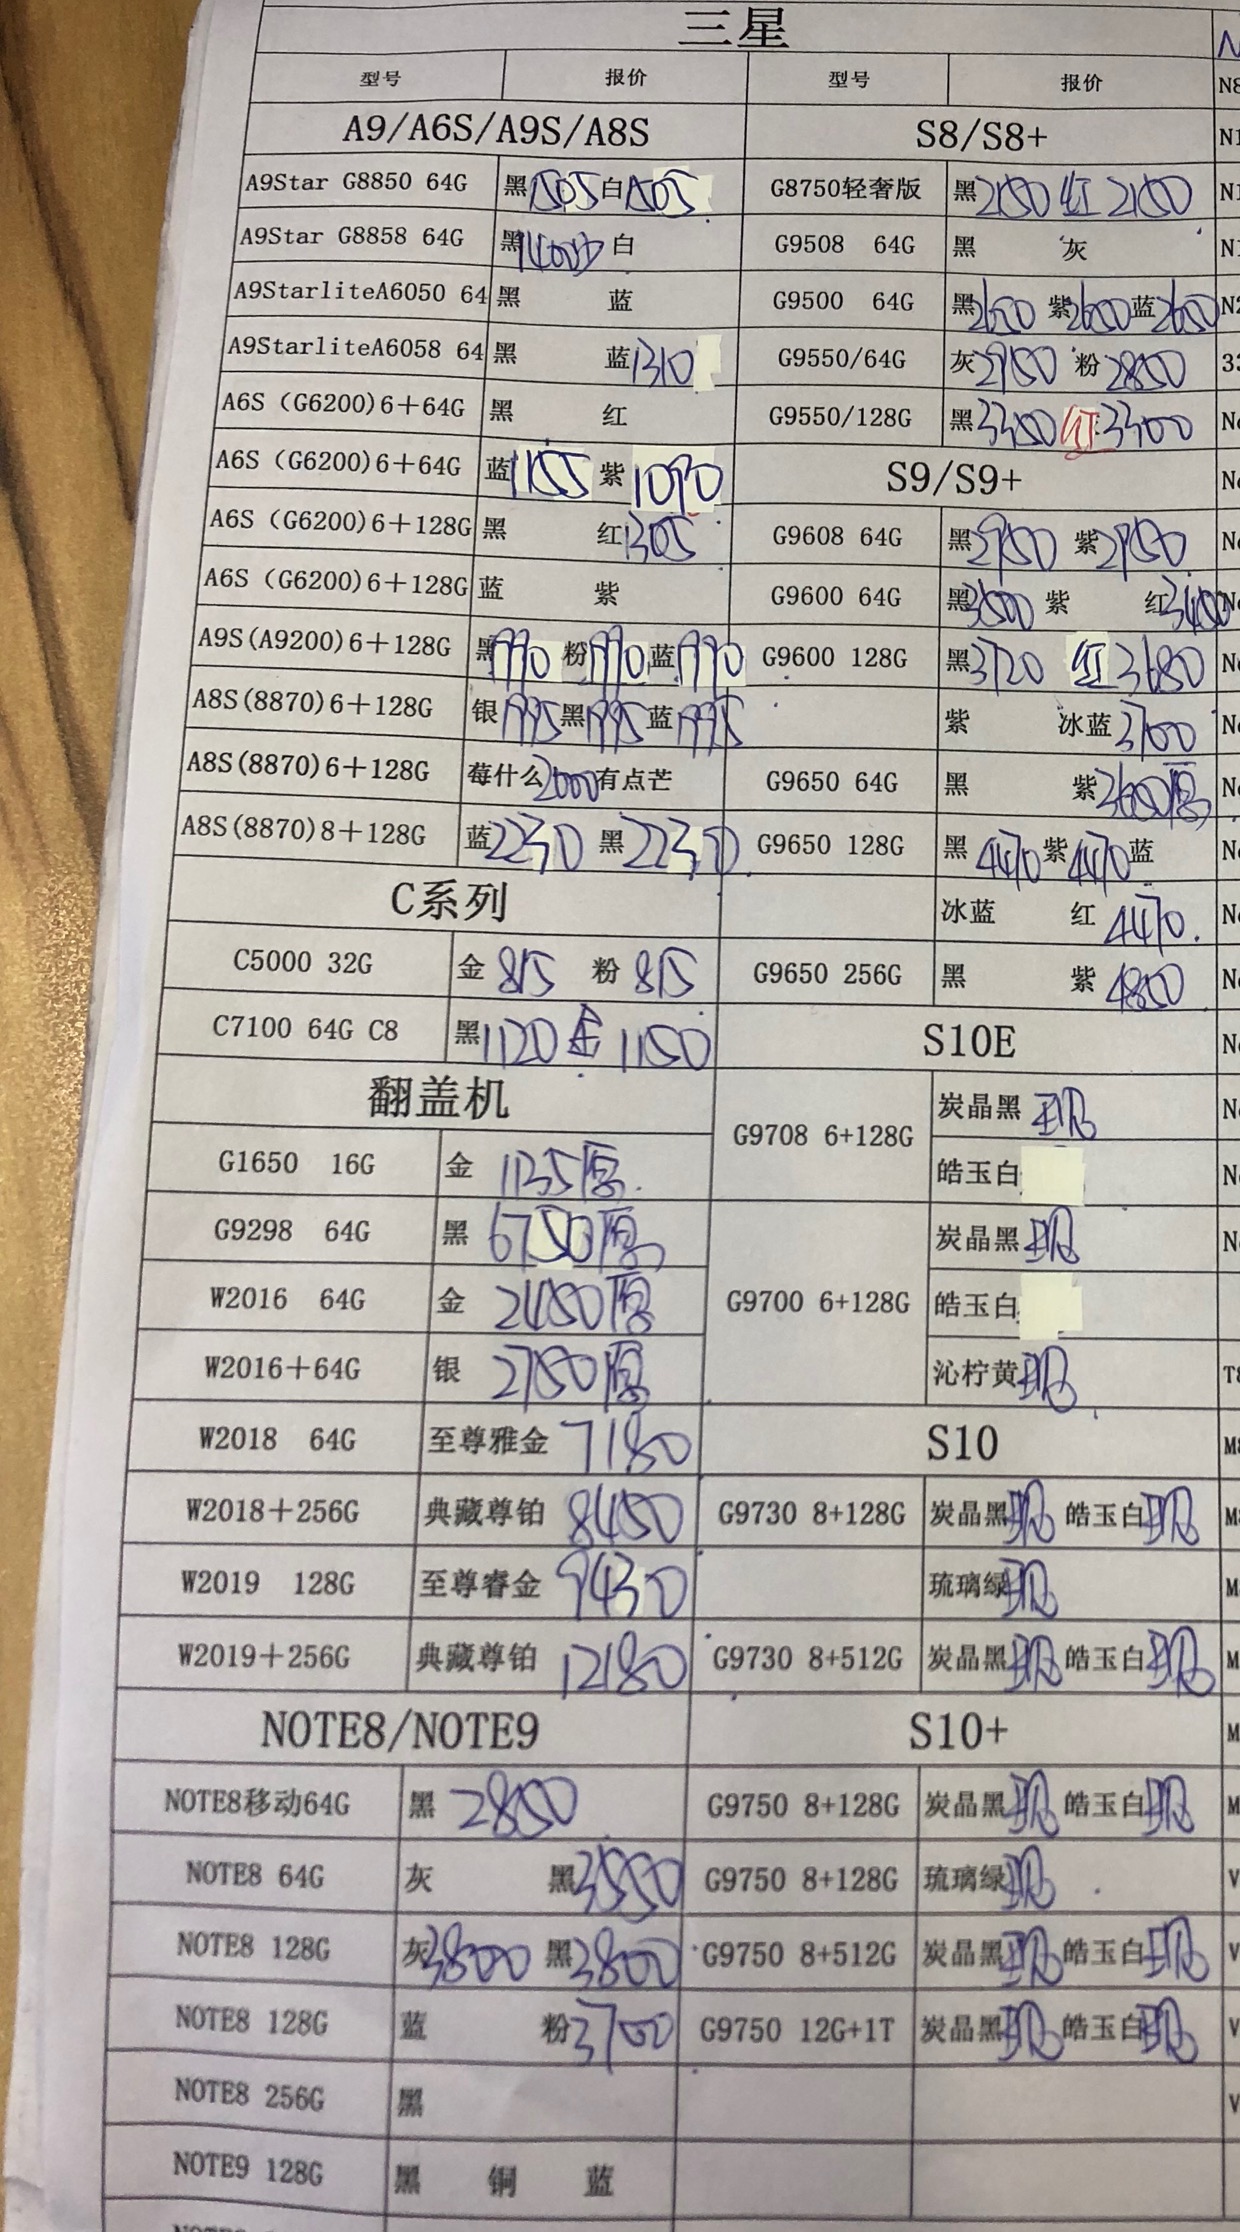 三星
型号 报价 型号 报价
A9/A6S/A9S/A8S S8/S8+
A9Star G8850 64G 黑1505白1505 G8750轻奢版 黑2150 红2150
A9Star G8858 64G 黑1400 白 G9508 64G 黑 灰
A9StarliteA6050 64 黑 蓝 G9500 64G 黑2650 紫2600蓝2650
A9StarliteA6058 64 黑 蓝1310 G9550/64G 灰2950 粉2850
A6S（G6200)6＋64G 黑 红 G9550/128G 黑3350红3300
A6S（G6200)6＋64G 蓝1155 紫1090 S9/S9+
A6S（G6200)6＋128G 黑 红1305 G9608 64G 黑2950 紫2950
A6S（G6200)6＋128G 蓝 紫 G9600 64G 黑3500 紫 红3450
A9S(A9200)6＋128G 黑1990粉1990蓝1990 G9600 128G 黑3720 红3680
A8S(8870)6＋128G 银1995黑1995蓝1995 紫 冰蓝3700
A8S(8870)6＋128G 莓什么2000有点芒 G9650 64G 黑 紫3600厚
A8S(8870)8＋128G 蓝2230 黑2230 G9650 128G 黑4470紫4470蓝
C系列 冰蓝 红4470.
C5000 32G 金815 粉815 G9650 256G 黑 紫4850
C7100 64G C8 黑1120金1150 S10E
翻盖机 G9708 6+128G 炭晶黑现
G1650 16G 金1135厚. 皓玉白
G9298 64G 黑6750厚 G9700 6+128G 炭晶黑现
W2016 64G 金2450厚 皓玉白
W2016＋64G 银2750厚 沁柠黄现
W2018 64G 至尊雅金7180 S10
W2018＋256G 典藏尊铂8450 G9730 8+128G 炭晶黑现 皓玉白现
W2019 128G 至尊睿金9430 琉璃绿现
W2019＋256G 典藏尊铂12180 G9730 8+512G 炭晶黑现 皓玉白现
NOTE8/NOTE9 S10+
NOTE8移动64G 黑2850 G9750 8+128G 炭晶黑现 皓玉白现
NOTE8 64G 灰 黑3550 G9750 8+128G 琉璃绿现
NOTE8 128G 灰3800 黑3800 G9750 8+512G 炭晶黑现 皓玉白现
NOTE8 128G 蓝 粉3700 G9750 12G+1T 炭晶黑现 皓玉白现
NOTE8 256G 黑
NOTE9 128G 黑 铜 蓝